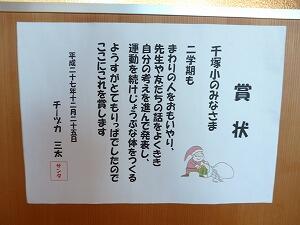 賞状
千塚小のみなさま
二学期も
まわりの人をおもいやり、
先生や友だちの話をよくきき
自分の考えを進んで発表し、
運動を続けじょうぶな体をつくる
ようすがとてもりっぱでしたので
ここにこれを賞します
平成二十七年十二月二十五日
チーヅカ 三太
サンタ